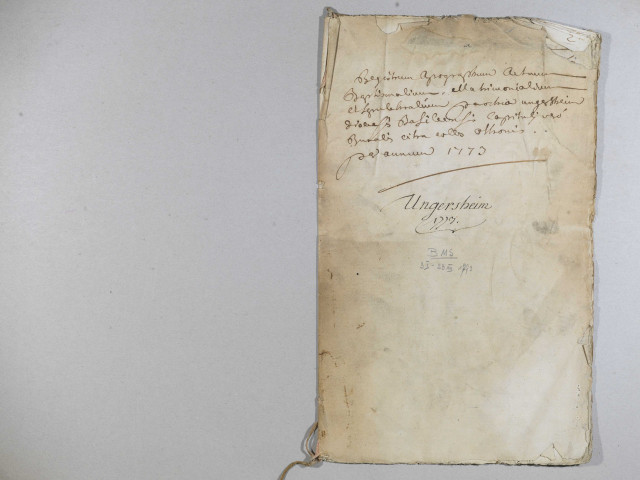 Registrum Apographum Actuum
Baptismalium, Matrimonialium
et Sepulchralium parochiae ungersheim
dioecesis Basileensis Capituli
Ruralis citra colles Ottonis.
per annum 1773
Ungersheim
1773.
BMS